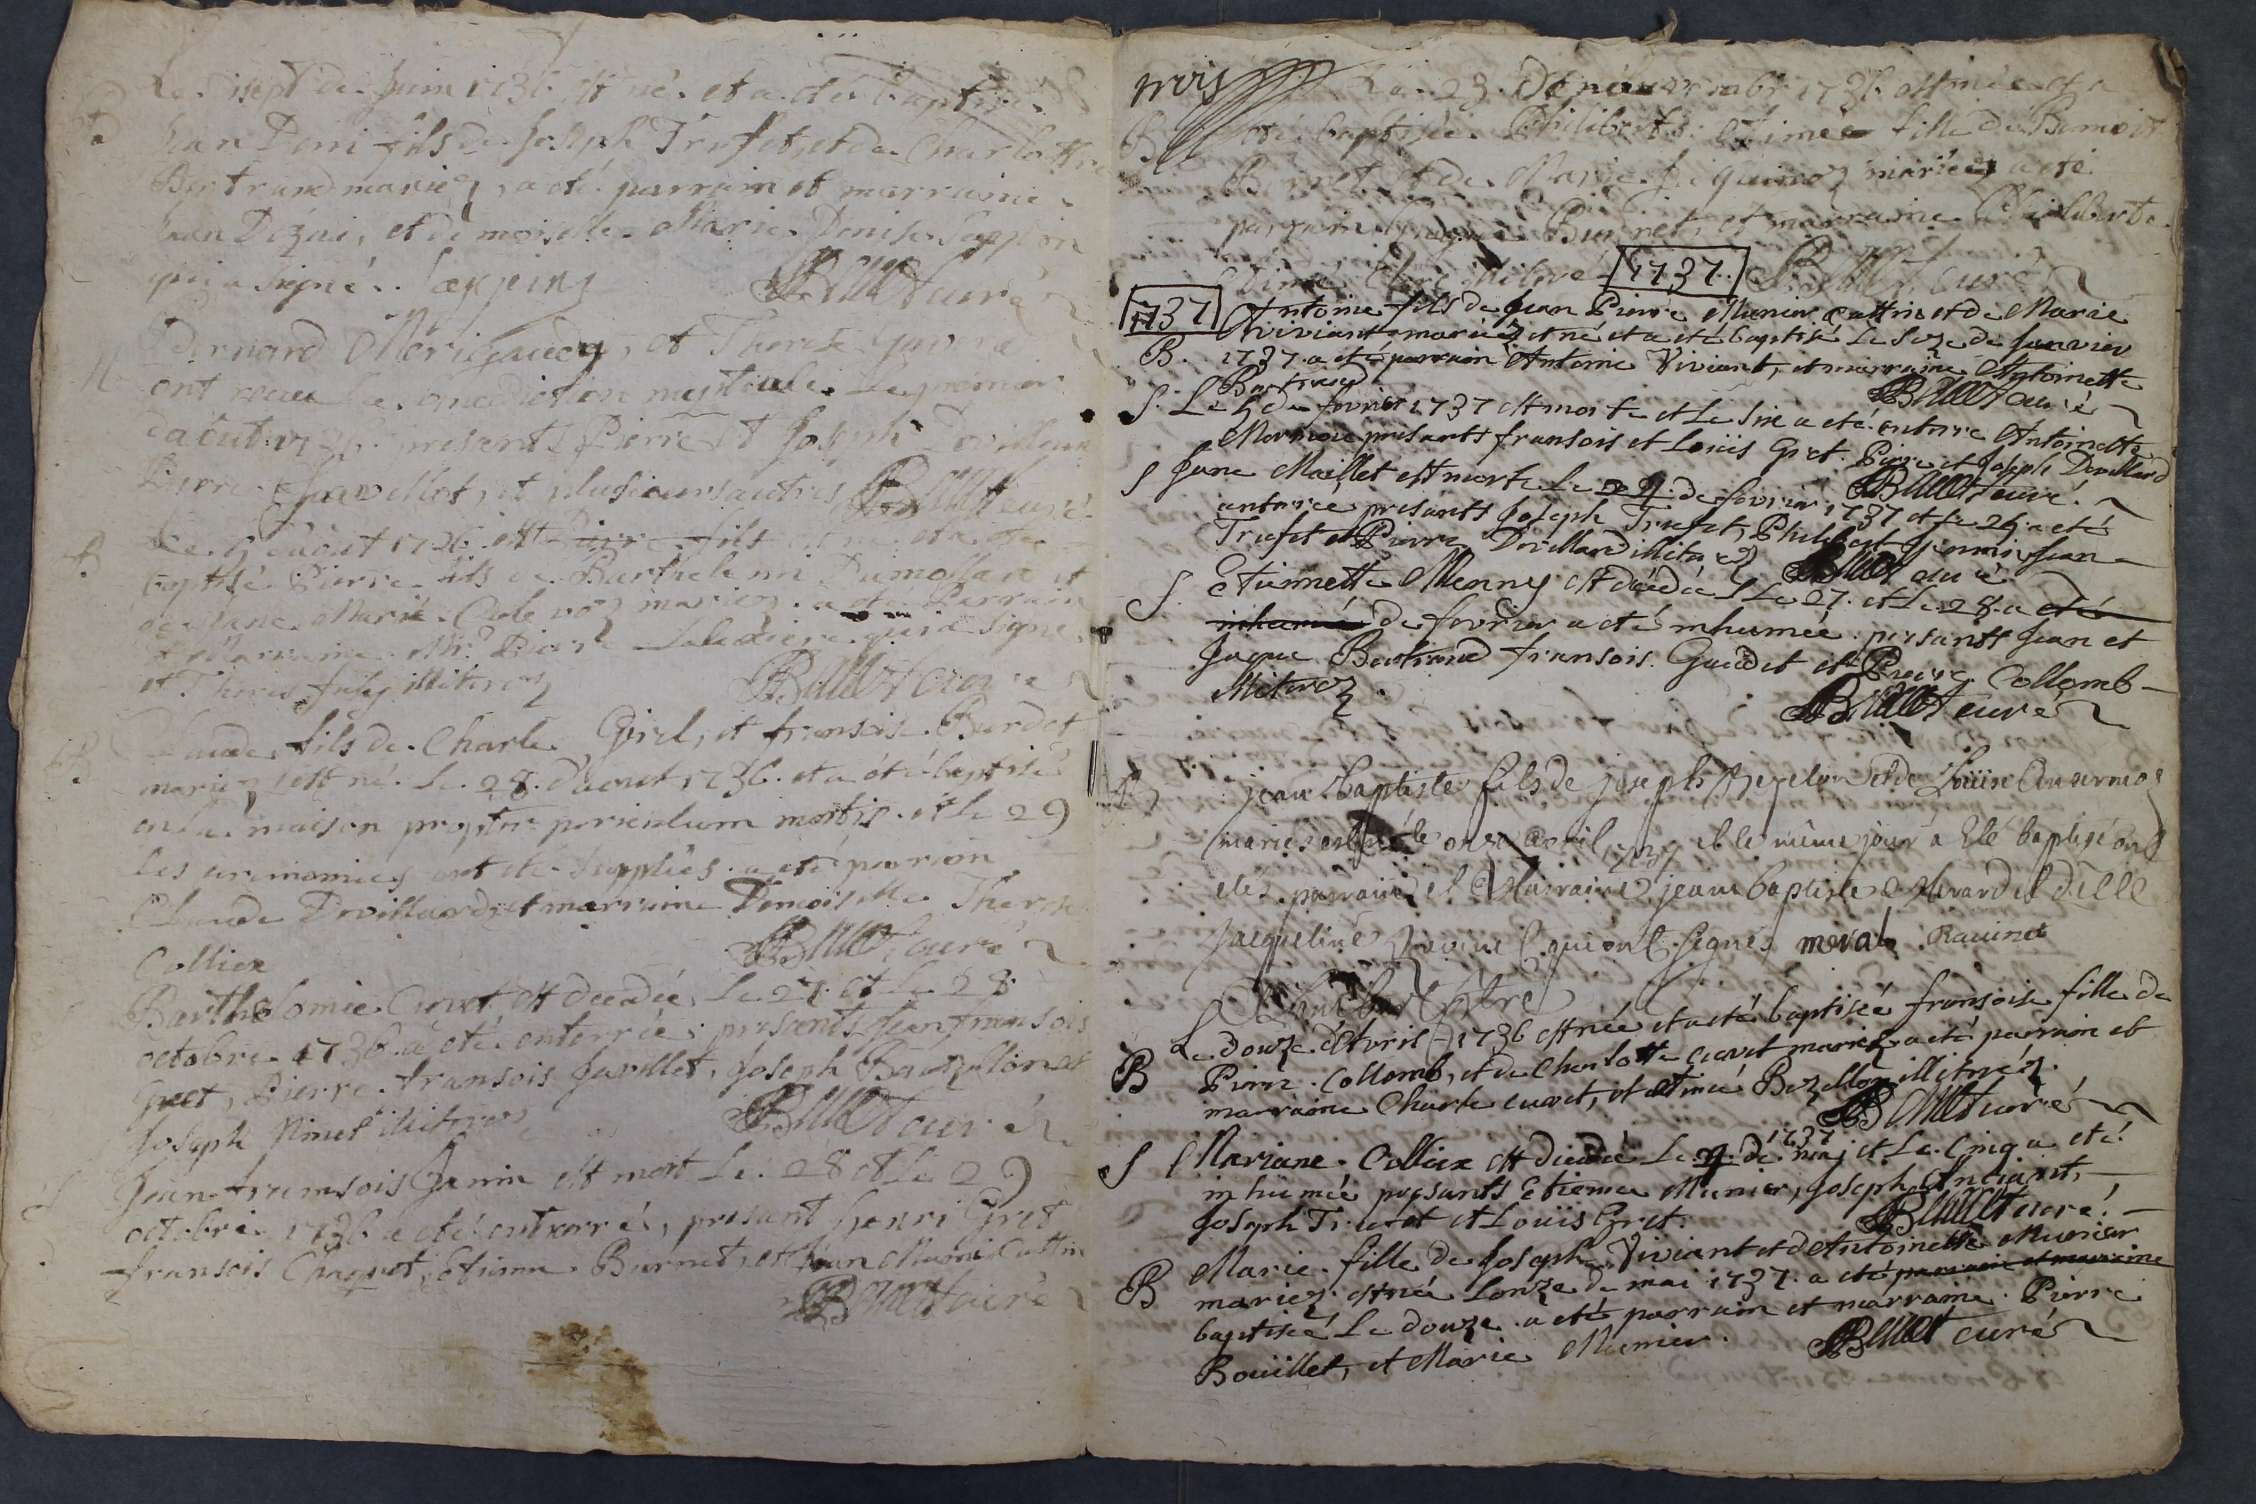 Le disept de Juin 1736 est né et a eté baptisé
B
Jean Deni fils de Joseph Trufet, et de Charlotte
Bertrand mariez, a eté parrain et marraine
Jean Dezai, et demoiselle Marie Denise
qui a signé.
Billet curé
N
Bernard et Therese
ont receu la benediction nuptiale le premier
d'aout 1736 presents Pierre et Joseph Dovillard
Pierre Javellot, et plusieurs autres Billet curé
B
Le 5 d'aout 1736 est Pierre fils et a eté
baptisé Pierre fils de Barthelemi Dumollard et
de Jane Marie mariez. a eté Parrain
et Marraine Mr. Pierre qui a signé
et Therese illiterez Billet curé
B
Claude fils de Charle Girel, et fransoise Burdet
mariez est né le 28 d'aout 1736 et a eté baptisé
en la maison propter periculum mortis et le 29
les ceremonies ont eté supplées a eté parrain
Claude Dovillard, et marraine Demoiselle Therese
Colliex Billet curé
Bartholomie Cuvet est decedée le 27 et le 28
octobre 1736 a eté enterrée, presents Jean fransois
Gret, Pierre fransois Javillet, Joseph Bazellon et
Joseph Pinet illiterez Billet curé
S
Jean fransois Janin est mort le 28 et le 29
octobre 1736 a eté enterré, presant henri Gret
fransois Canquet, Etienne Burnet, et Jean Munier Cattin
Billet curé
trois
Le 23 de novembre 1736 est née et a
B
eté baptisée Philiberte Etimée fille de Benoit
Burnet et de Marie mariez a eté
parrain Burnet, et marraine Philiberte
illiteré 1737 Billet curé
1737
Antoine fils de Jean Pierre Munier Cattin et de Marie
Viviant mariez est né et a eté baptisé Le seze de Janvier
B.
1737 a eté parrain Antoine Viviant, et marraine Antoinette
Bertrand Billet curé
S. Le 5 de fevrier 1737 est morte et Le six a eté enterré Antoinette
Mermoie presants fransois et Louis Gret Pierre et Joseph Dovillard
Billet curé.
S Jane Maillet est morte Le 24 de fevrier 1737 et Le 25 a eté
enterrée presants Joseph Trufet, Philibert Jean
Trufet et Pierre Dovillard illiterez Billet curé
S. Etiennette Menny est decedée Le 27 et Le 28 a eté
inhumé de fevrier a eté inhumée presants Jean et
Jaque Bertrand fransois Gaudet et Pierre Collomb
illiterez.
Billet curé
B
jean Baptiste fils de joseph Bezelon et de Louise
mariés est né le onze avril 1737 et le même jour a Eté baptisé ont
etés parrain et Marraine jean baptiste Merard et dlle
jacqueline Ravinet qui ont signés meral Ravinet
Le douze d'Avril 1736 est née et a eté baptisée fransoise fille de
B Pierre Collomb, et de Charlotte cuvet mariez a eté parrain et
marraine Charle cuvet, et etimée Bezellon illiterez.
Billet curé
1737
S Mariane Colliex est decedé Le 4 de mai et Le Cinq a eté
inhumée presants Etienne Munier, Joseph Anciant,
Joseph Trufet et Louis Gret. Billet curé.
Marie fille de Joseph Viviant et d'Antoinette Munier
B mariez est née Lonze de mai 1737 a eté parrain et marraine
baptisée Le douze a eté parrain et marraine Pierre
Bouillet, et Marie Munier. Billet curé